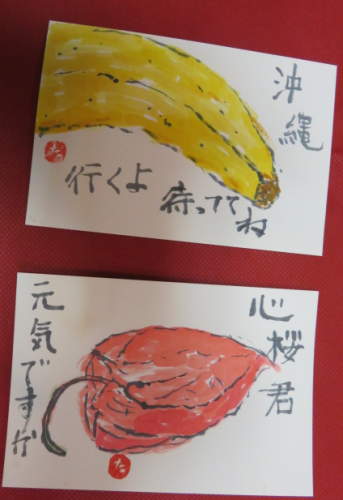 沖縄
行くよ
待っててね
た
心桜君
元気ですか
た